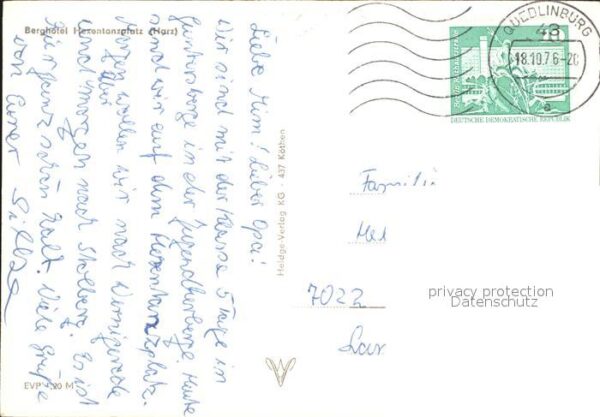 Berghotel Hexentanzplatz (Harz)
Liebe Mum! Lieber Opa!
Wir sind mit der Klasse 5 Tage in
Güntersberge in der Jugendherberge. Heute
sind wir auf dem Hexentanzplatz.
Morgen wollen wir nach Wernigerode
und morgen nach Stolberg. Es ist
hier ganz schön kalt. Viele Grüße
von Eurer
Heldge-Verlag KG 437 Köthen
EVP -,20 M
QUEDLINBURG
43
18.10.76-20
a
DEUTSCHE DEMOKRATISCHE REPUBLIK
Familie
7022
privacy protection
Datenschutz